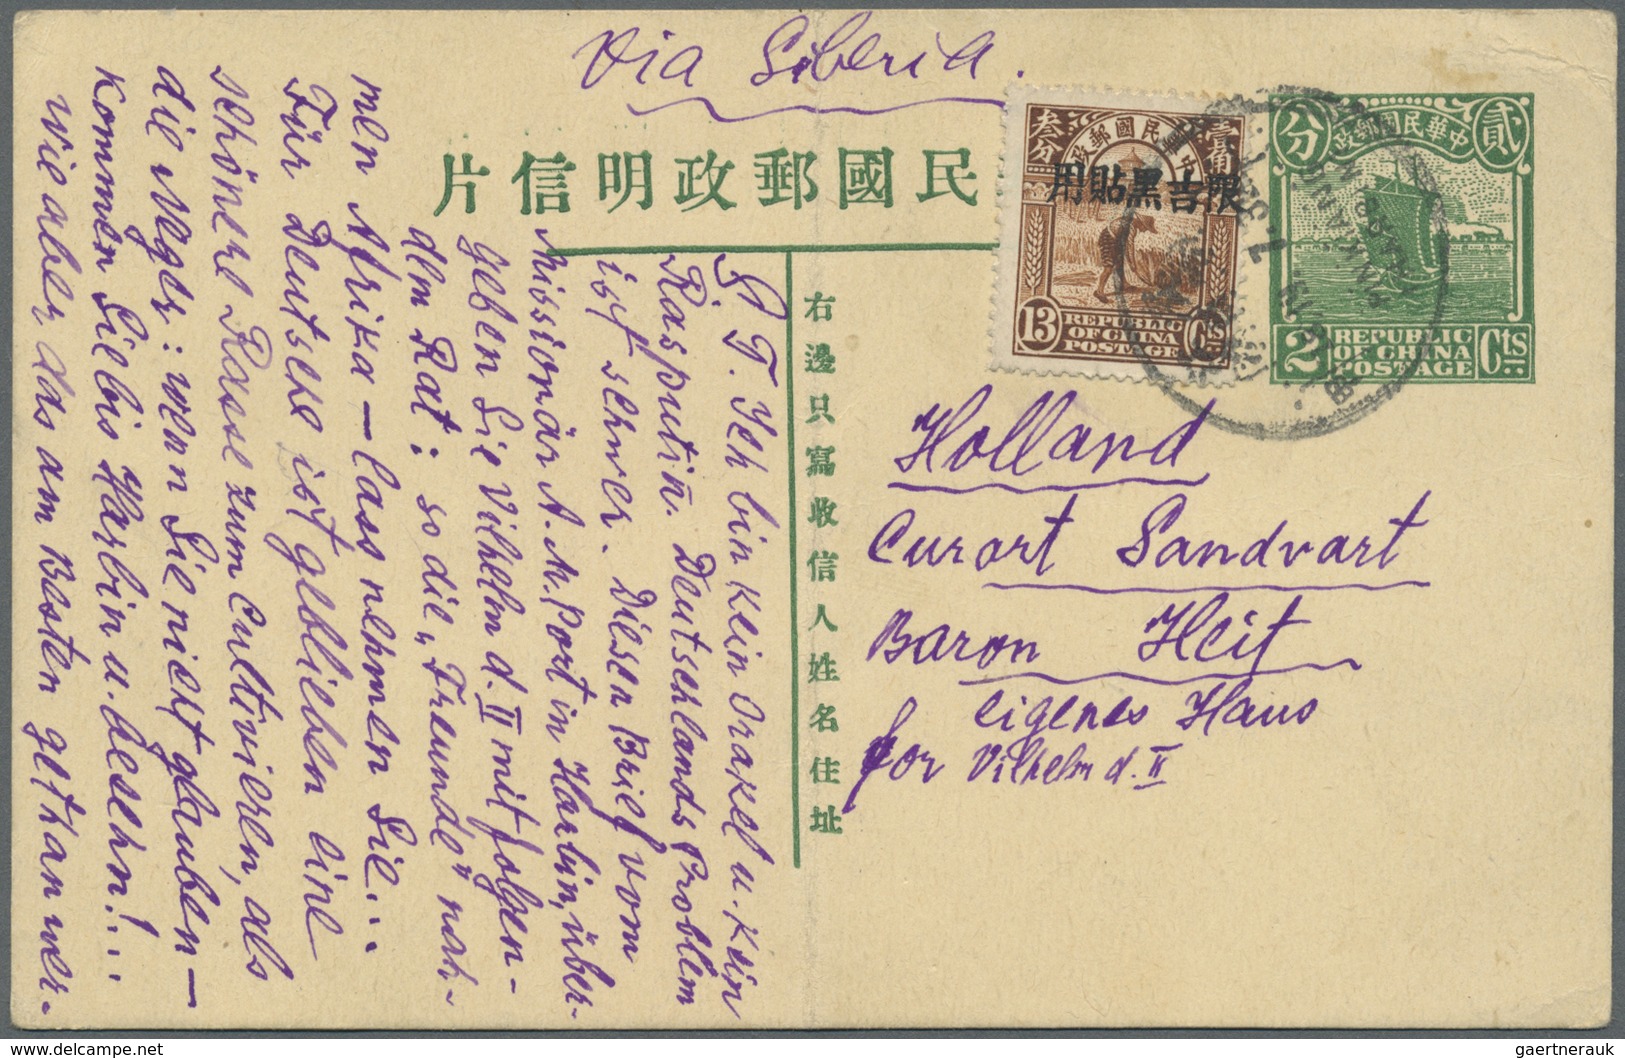 Via Siberia.
民國郵政明信片
中華民國郵政
壹角
叁分
限吉黑貼用
13 Cts
REPUBLIC
OF CHINA
POSTAGE
中華民國郵政
貳
分
2 Cts
REPUBLIC
OF CHINA
POSTAGE
右邊只寫收信人姓名住址
Holland
Curort Sandvart
Baron Heit
eigenes Haus
for Vilhelm d. II
P. T. Ich bin kein Orakel u. kein
Rasputin. Deutschlands Problem
ist schwer. Diesen Brief vom
Missionär A. M. Port in Harbin, über-
geben Sie Vilhelm d. II mit folgen-
dem Rat: so die „Freunde" nah-
men Afrika — lass nehmen Sie...
Für Deutsche ist geblieben eine
schönere Rasse zum Cultivieren, als
die Neger: wenn Sie nicht glauben —
kommen Sie bis Harbin u. besehn!...
wie aber, das am Besten gethan wer-
gaertnerauk
delcampe.net